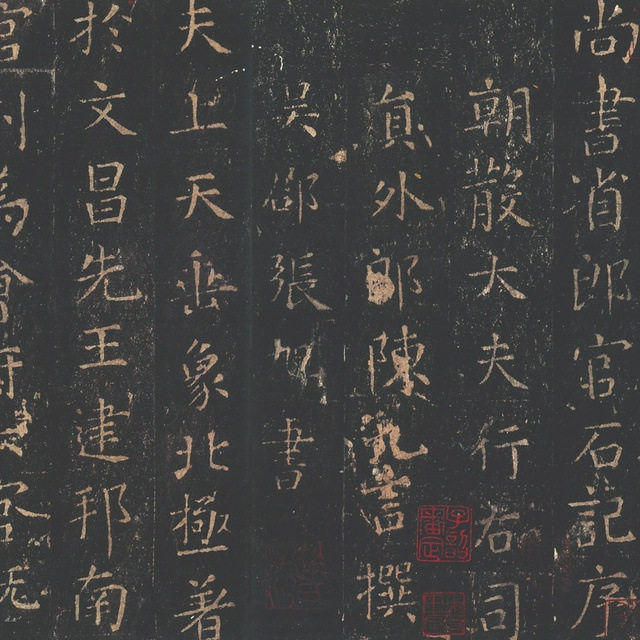 尚書省郎官石記序
朝散大夫行右司
員外郎陳九言撰
吳郡張旭書
夫上天垂象北極著
於文昌先王建邦南
宮列為會府官既